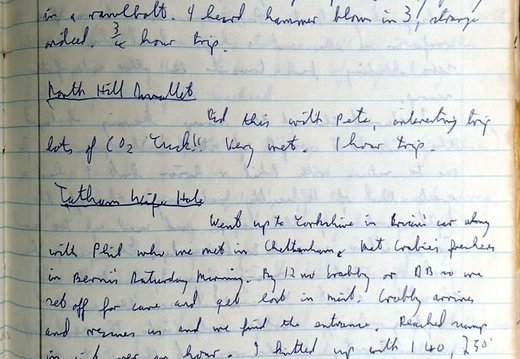 in a rawlbolt. I heard hammer blows in 3, strange
indeed. 3/4 hour trip.
North Hill Swallet
Did this with Pete, interesting trip
lots of CO2 "Yuck!! Very wet. 1 hour trip.
Tatham Wife Hole
Went up to Yorkshire in Brian's car along
with Phil who we met in Cheltenham. Met freshers
in Bernie's Saturday Morning. By 12 no or BB so we
set off for cave and get lost in mist. arrives
and rescues us and we find the entrance. Reached sump
in over an hour. I kitted up with 1 40, 230'